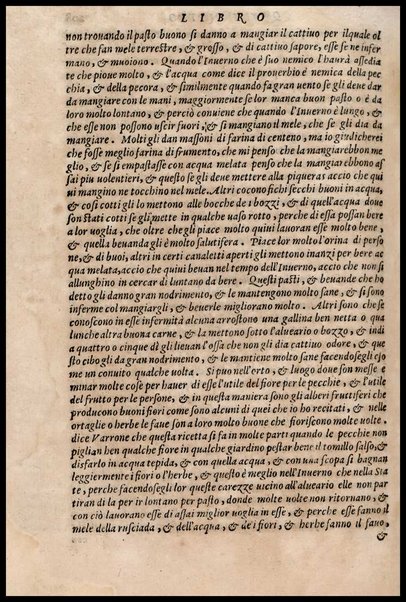 LIBRO
non trouando il pasto buono si danno a mangiar il cattiuo per ilquale ol
tre che fan mele terrestre, & grosso, & di cattiuo sapore, esse se ne infer
mano, & muoiono. Quando l'Inuerno che è suo nemico l'haurà assedia
te che pioue molto, & l'acqua come dice il prouerbio è nemica della pec
chia, & della pecora, & similmente quando fa gran uento se gli deue dar
da mangiare con le mani, maggiormente se lor manca buon pasto o è da
loro molto lontano, & perciò conuiene che quando l'Inuerno è lungo, &
che esse non possono uscir fuori, & si mangiano il mele, che se gli dia da
mangiare. Molti gli dan massoni di farina di centeno, ma io giudicherei
che fosse meglio farina di frumento, che mi penso che la mangiarebbon me
glio, & se si empastasse con acqua melata penso che la mangiarebbono as
sai piu uolentieri, & questo se gli deue mettere alla piqueras accio che qui
ui mangino ne tocchino nel mele. Altri cocono fichi secchi buoni in acqua,
& cosi cotti gli lo mettono alle bocche de i bozzi, & di quell'acqua doue
son stati cotti se gli mette in qualche uaso rotto, perche di essa possan bere
a lor uoglia, che oltre che gli piace molto quiui lauoran esse molto bene,
& quella beuanda gli è molto salutifera. Piace lor molto l'orina di perso
ne, & di buoi, altri in certi canaletti aperti gli mettono inanzi per bere ac
qua melata, accio che quiui beuan nel tempo dell'Inuerno, accio che non si
allunghino in cercar di luntano da bere. Questi pasti, & beuande che ho
detto gli danno gran nodrimento, & le mantengono molto sane, & si sono
inferme col mangiargli, & beuerle migliorano molto. Altri sono che se
conoscono in esse infermità alcuna arrostono una gallina ben netta o qua
lunche altra buona carne, & la mettono sotto l'alueario o bozzo, & indi
a quattro o cinque dì gli leuano l'ossa che non gli dia cattiuo odore, & que
sto cibo gli da gran nodrimento, & le mantiene molto sane facendosegli ẹjo
me un conuito qualche uolta. Si puo nell'orto, & luogo doue son messe e
minar molte cose per hauer di esse l'utile del fiore per le pecchie, & l'utile
del frutto per le persone, & in questa maniera sono gli alberi fruttiferi che
producono buoni fiori come sono alcuni di quei che io ho recitati, & nelle
ortaglie o herbe le faue son a loro molto buone che fioriscono molte uolte,
dice Varrone che questa ricetta si fa in molte parti quando le pecchie non
piglian ben qualche fiore in qualche giardino pestar bene il tomillo salso, &
disfarlo in acqua tepida, & con quella acqua, & con una scopa si bagnan
leggiermente i fiori o l'herbe, & questo è meglio nell'Inuerno che nella Sta
te, perche facendosegli lor queste carezze uicino all'alueario elle non par
tiran di la per ir lontano per pasto, donde molte uolte non ritornano, &
con ciò lauorano esse di assai miglior uoglia in esse, & perche esse fanno il
mele della rusciada, & dell'acqua, & de i fiori, & herbe fanno il fauo,
&